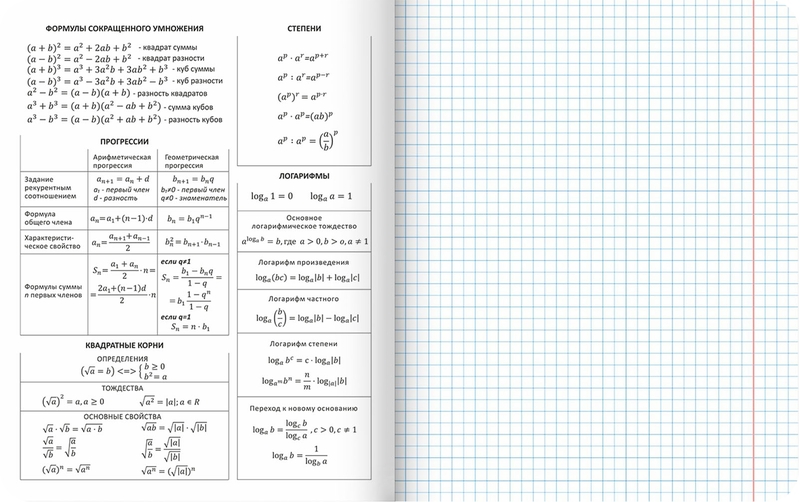 ФОРМУЛЫ СОКРАЩЕННОГО УМНОЖЕНИЯ
(a + b)² = a² + 2ab + b² - квадрат суммы
(a − b)² = a² − 2ab + b² - квадрат разности
(a + b)³ = a³ + 3a²b + 3ab² + b³ - куб суммы
(a − b)³ = a³ − 3a²b + 3ab² − b³ - куб разности
a² − b² = (a − b)(a + b) - разность квадратов
a³ + b³ = (a + b)(a² − ab + b²) - сумма кубов
a³ − b³ = (a − b)(a² + ab + b²) - разность кубов
ПРОГРЕССИИ
Арифметическая прогрессия
Геометрическая прогрессия
Задание рекурентным соотношением
aₙ₊₁ = aₙ + d
a₁ - первый член
d - разность
bₙ₊₁ = bₙq
b₁≠0 - первый член
q≠0 - знаменатель
Формула общего члена
aₙ=a₁+(n−1)·d
bₙ = b₁qⁿ⁻¹
Характеристи-
ческое свойство
aₙ= (aₙ₊₁+aₙ₋₁)/2
bₙ² = bₙ₊₁·bₙ₋₁
Формулы суммы n первых членов
Sₙ= (a₁ + aₙ)/2 ·n=
= (2a₁+(n−1)d)/2 ·n
если q≠1
Sₙ = (b₁ − bₙq)/(1 − q) =
= b₁ (1 − qⁿ)/(1 − q)
если q=1
Sₙ = n · b₁
КВАДРАТНЫЕ КОРНИ
ОПРЕДЕЛЕНИЯ
(√a = b) <=> { b ≥ 0
b² = a
ТОЖДЕСТВА
(√a)² = a, a ≥ 0 √a² = |a|; a ∈ R
ОСНОВНЫЕ СВОЙСТВА
√a · √b = √(a · b) √(ab) = √|a| · √|b|
√a/√b = √(a/b) √(a/b) = √|a|/√|b|
(√a)ⁿ = √aⁿ √aⁿ = (√|a|)ⁿ
СТЕПЕНИ
aᵖ · aʳ=aᵖ⁺ʳ
aᵖ : aʳ=aᵖ⁻ʳ
(aᵖ)ʳ = aᵖ·ʳ
aᵖ · aᵖ=(ab)ᵖ
aᵖ : aᵖ = (a/b)ᵖ
ЛОГАРИФМЫ
logₐ 1 = 0 logₐ a = 1
Основное
логарифмическое тождество
a^(logₐ b) = b, где a > 0, b > o, a ≠ 1
Логарифм произведения
logₐ(bc) = logₐ|b| + logₐ|c|
Логарифм частного
logₐ(b/c) = logₐ|b| − logₐ|c|
Логарифм степени
logₐ bᶜ = c · logₐ|b|
log_(aᵐ) bⁿ = n/m · log_|a||b|
Переход к новому основанию
logₐ b = (log_c b)/(log_c a), c > 0, c ≠ 1
logₐ b = 1/(log_b a)